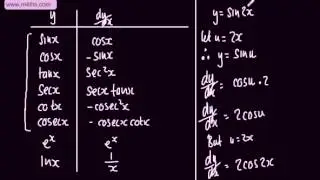 www.m4ths.com
y dy/dx
sinx cosx
cosx -sinx
tanx sec²x
secx secxtanx
cotx -cosec²x
cosecx -cosecxcotx
eˣ eˣ
lnx 1/x
y = sin2x
let u = 2x
∴ y = sinu
dy/dx = cosu . 2
dy/dx = 2cosu
But u = 2x
dy/dx = 2cos2x